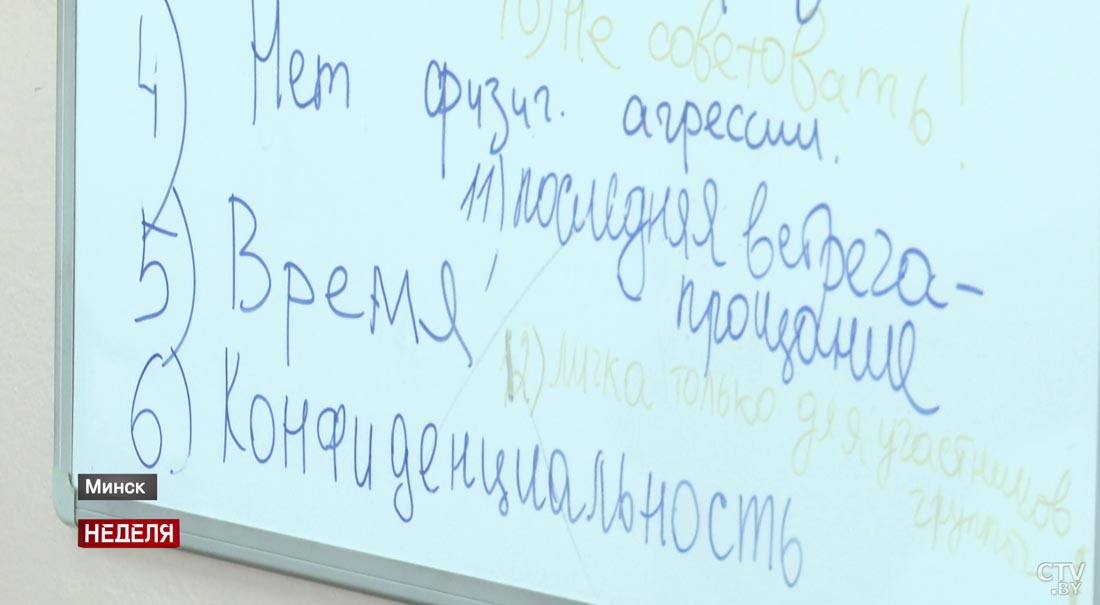 10) Не советовать!
4) Нет физич. агрессии.
11) последняя встреча-
прощание
5) Время
12) личка только для участников
группы
6) Конфиденциальность
Минск
НЕДЕЛЯ
CTV
.BY